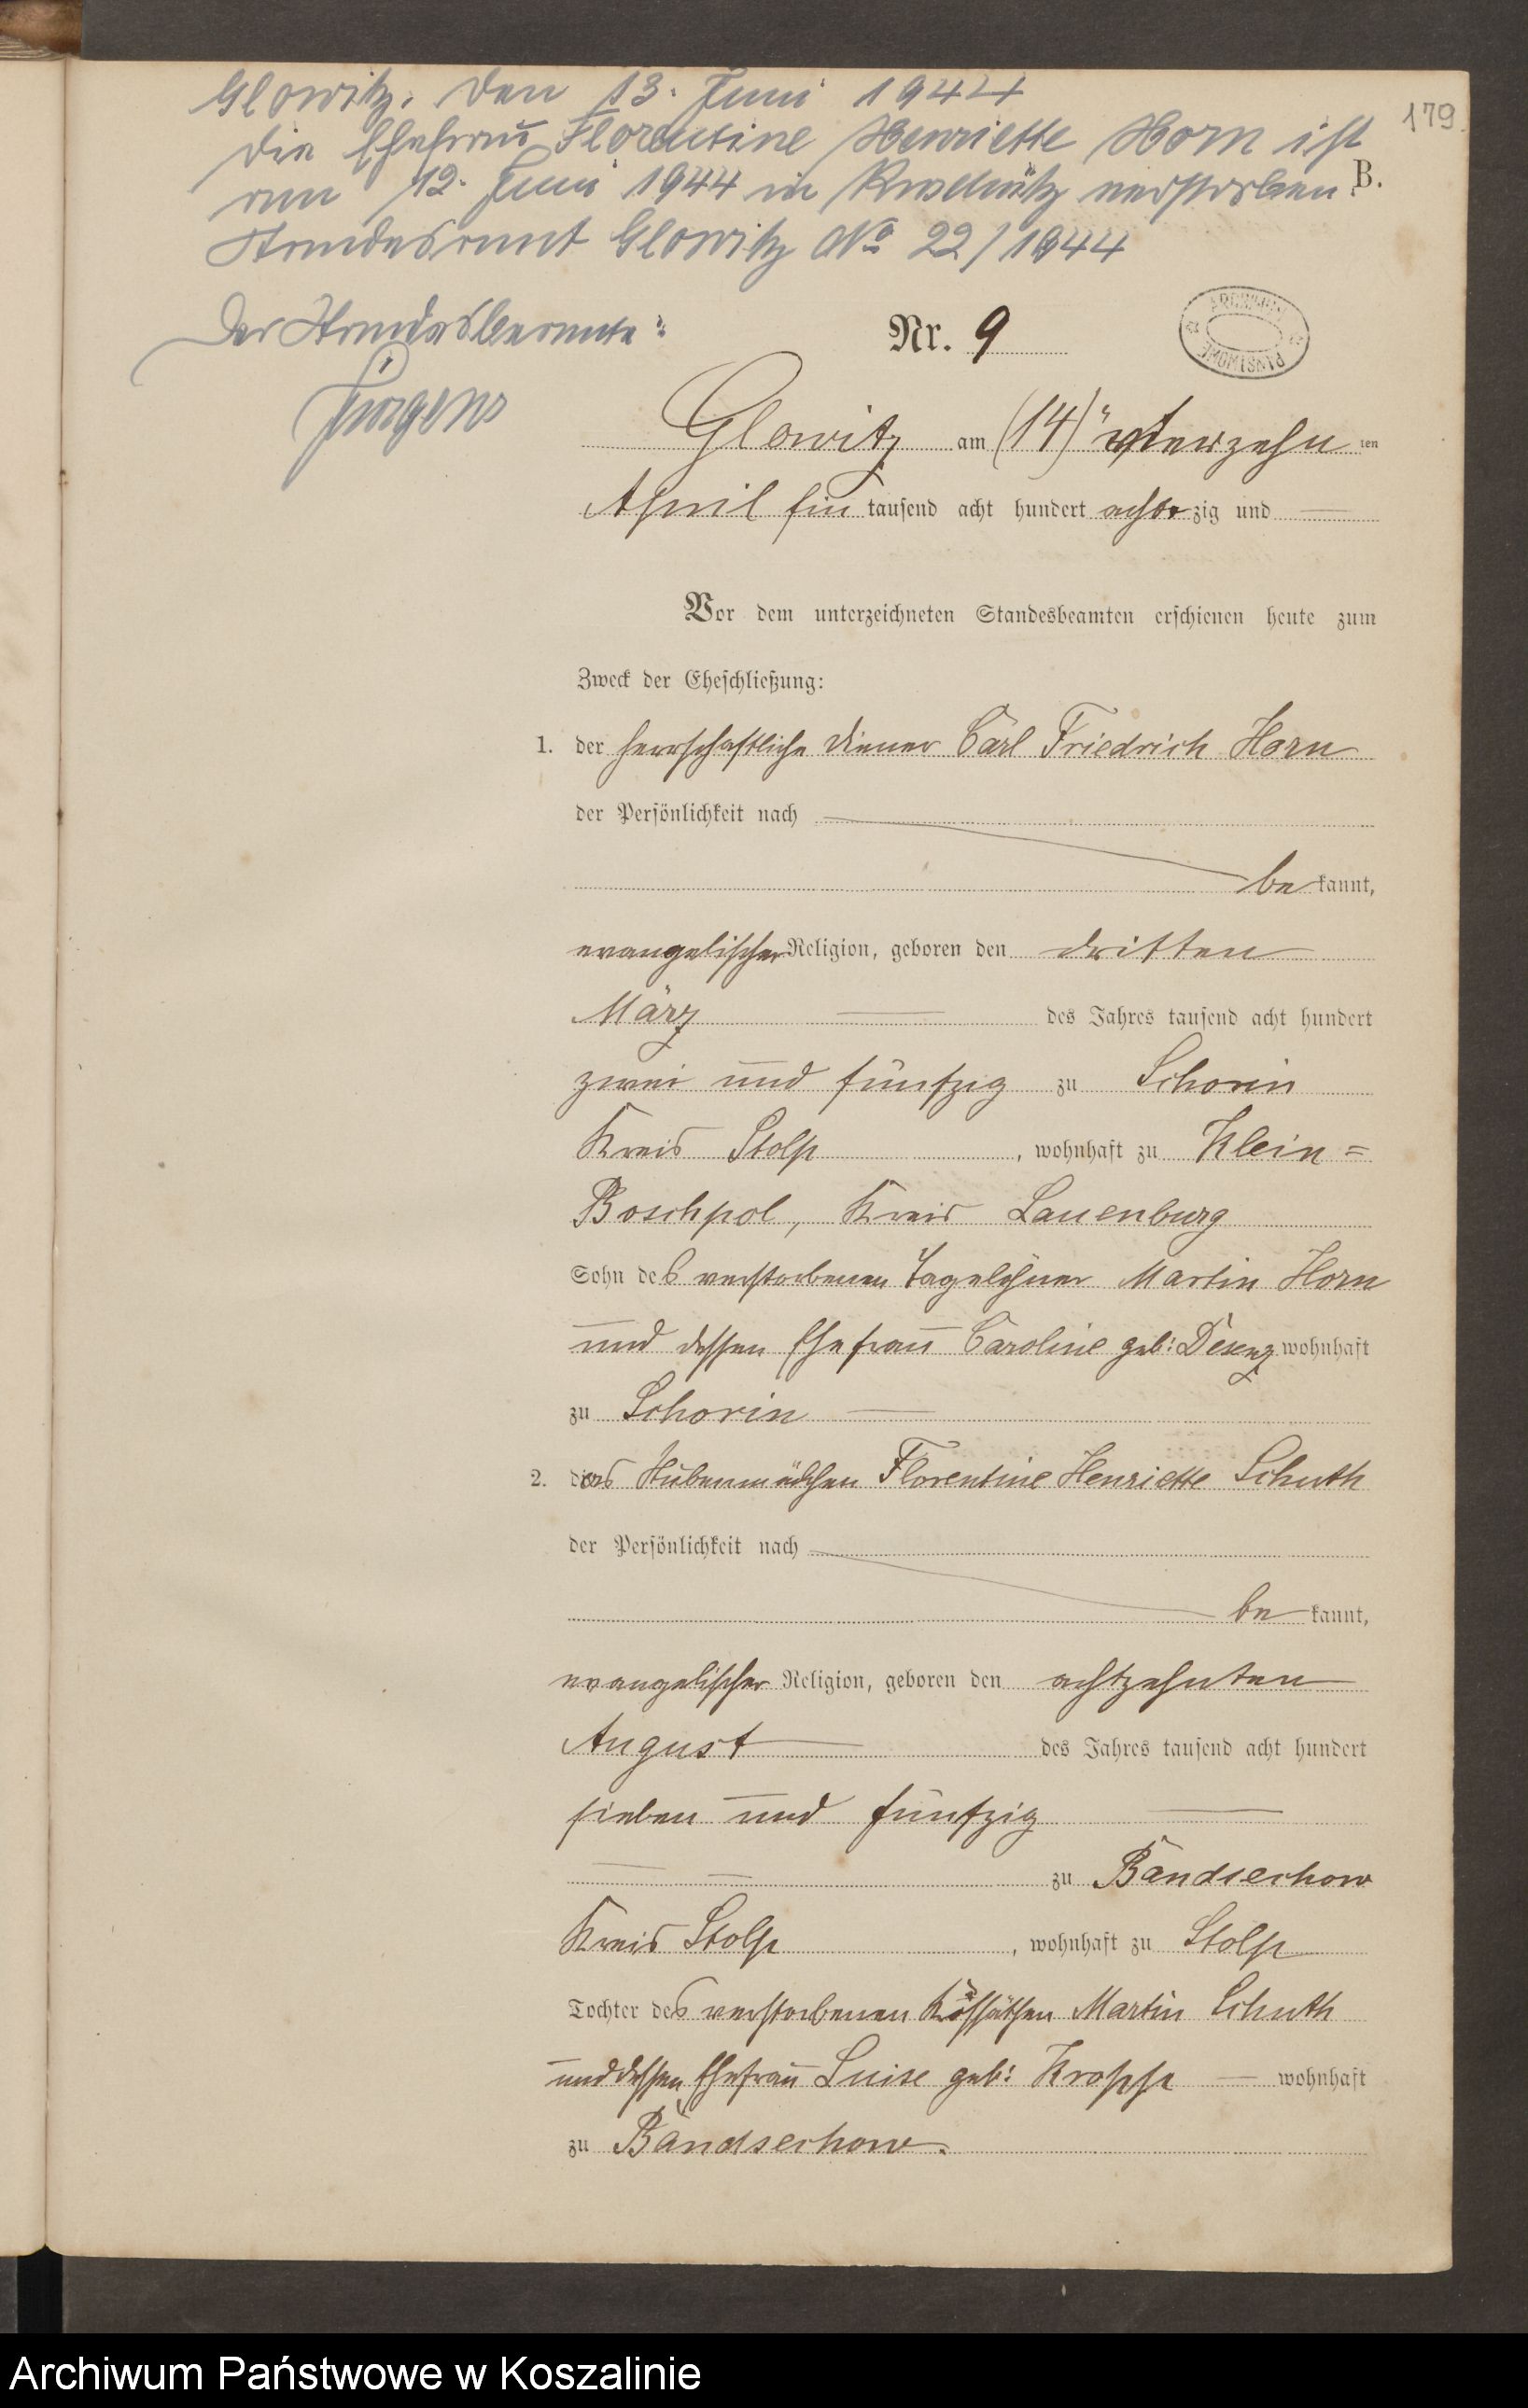 Glowitz, den 13. Juni 1944
179
Die Ehefrau Florentine Henriette Horn ist
am 12. Juni 1944 in Ruschütz verstorben.
B.
Standesamt Glowitz No 22/1944
Der Standesbeamte:
Jürgens
Nr. 9
ARCHIWUM PAŃSTWOWE
Glowitz am (14) vierzehn ten
April ein tausend acht hundert acht zig und —
Vor dem unterzeichneten Standesbeamten erschienen heute zum
Zweck der Eheschließung:
1. der herrschaftliche Diener Carl Friedrich Horn
der Persönlichkeit nach
be kannt,
evangelischer Religion, geboren den dritten
März — des Jahres tausend acht hundert
zwei und fünfzig zu Schorin
Kreis Stolp, wohnhaft zu Klein=
Boschpol, Kreis Lauenburg
Sohn des verstorbenen Tagelöhner Martin Horn
und dessen Ehefrau Caroline geb: wohnhaft
zu Schorin —
2. das Stubenmädchen Florentine Henriette Schuth
der Persönlichkeit nach
be kannt,
evangelischer Religion, geboren den achtzehnten
August — des Jahres tausend acht hundert
sieben und fünfzig —
— — zu Bandsechow
Kreis Stolp, wohnhaft zu Stolp
Tochter des verstorbenen Kossäthen Martin Schuth
und dessen Ehefrau Luise geb: Kropp — wohnhaft
zu Bandsechow.
Archiwum Państwowe w Koszalinie